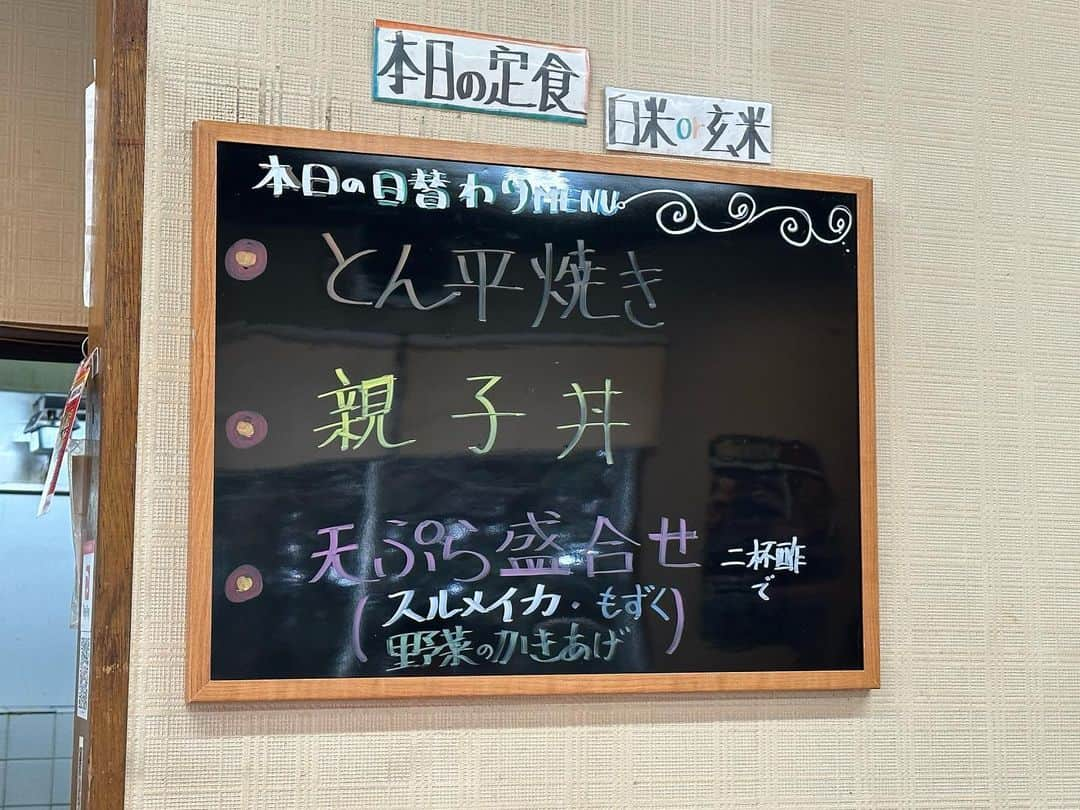 本日の定食
白米or玄米
本日の日替わりMENU。
とん平焼き
親子丼
天ぷら盛合せ 二杯酢で
(スルメイカ・もずく
野菜のかきあげ)